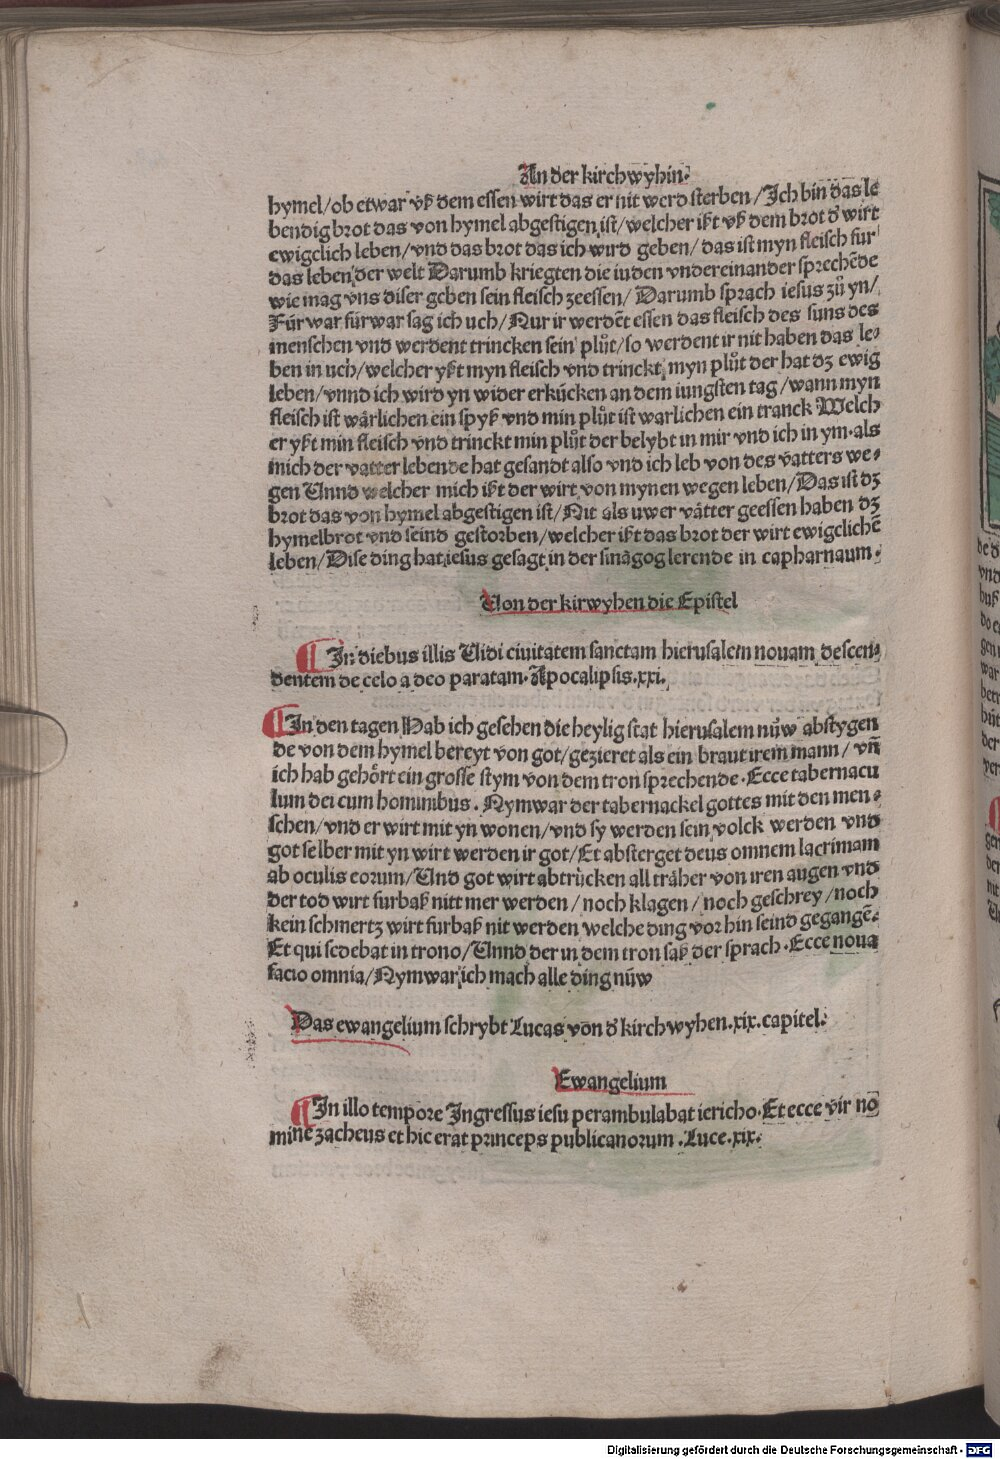 An der kirchwyhin·
hymel/ob etwar vß dem essen wirt das er nit werd sterben/Ich bin das le
bendig brot das von hymel abgestigen ist/welcher ißt vß dem brot d' wirt
ewigclich leben/vnd das brot das ich wird geben/das ist myn fleisch für
das leben der welt Darumb kriegten die iuden vndereinander sprechēde
wie mag vns diser geben sein fleisch zeessen/Darumb sprach iesus zů yn/
Fürwar fürwar sag ich uch/Nur ir werdēt essen das fleisch des suns des
menschen vnd werdent trincken sein plůt/so werdent ir nit haben das le-
ben in uch/welcher yßt myn fleisch vnd trinckt myn plůt der hat dz ewig
leben/vnnd ich wird yn wider erkücken an dem iungsten tag/wann myn
fleisch ist wärlichen ein spyß vnd min plůt ist warlichen ein tranck Welch
er yßt min fleisch vnd trinckt min plůt der belybt in mir vnd ich in ym·als
mich der vatter lebende hat gesandt also vnd ich leb von des vatters we-
gen Vnnd welcher mich ißt der wirt von mynen wegen leben/Das ist dz
brot das von hymel abgestigen ist/Nit als uwer vätter geessen haben dz
hymelbrot vnd seind gestorben/welcher ißt das brot der wirt ewigclichē
leben/Dise ding hat iesus gesagt in der sinagog lerende in capharnaum·
Von der kirwyhen die Epistel
¶ In diebus illis Vidi ciuitatem sanctam hierusalem nouam descen-
dentem de celo a deo paratam·Apocalipsis.xxi.
¶ In den tagen Hab ich gesehen die heylig stat hierusalem nüw abstygen
de von dem hymel bereyt von got/gezieret als ein braut irem mann/vn̄
ich hab gehört ein grosse stym von dem tron sprechende·Ecce tabernacu
lum dei cum hominibus.Nymwar der tabernackel gottes mit den men-
schen/vnd er wirt mit yn wonen/vnd sy werden sein volck werden vnd
got selber mit yn wirt werden ir got/Et absterget deus omnem lacrimam
ab oculis eorum/Vnd got wirt abtrücken all träher von iren augen vnd
der tod wirt furbaß nitt mer werden/noch klagen/noch geschrey/noch
kein schmertz wirt furbaß nit werden welche ding vor hin seind gegangē·
Et qui sedebat in trono/Vnnd der in dem tron saß der sprach·Ecce noua
facio omnia/Nymwar ich mach alle ding nüw
Das ewangelium schrybt Lucas von d' kirchwyhen.xix.capitel·
Ewangelium
¶ In illo tempore Ingressus iesu perambulabat iericho·Et ecce vir no
mine zacheus et hic erat princeps publicanorum.Luce.xix·
Digitalisierung gefördert durch die Deutsche Forschungsgemeinschaft - DFG